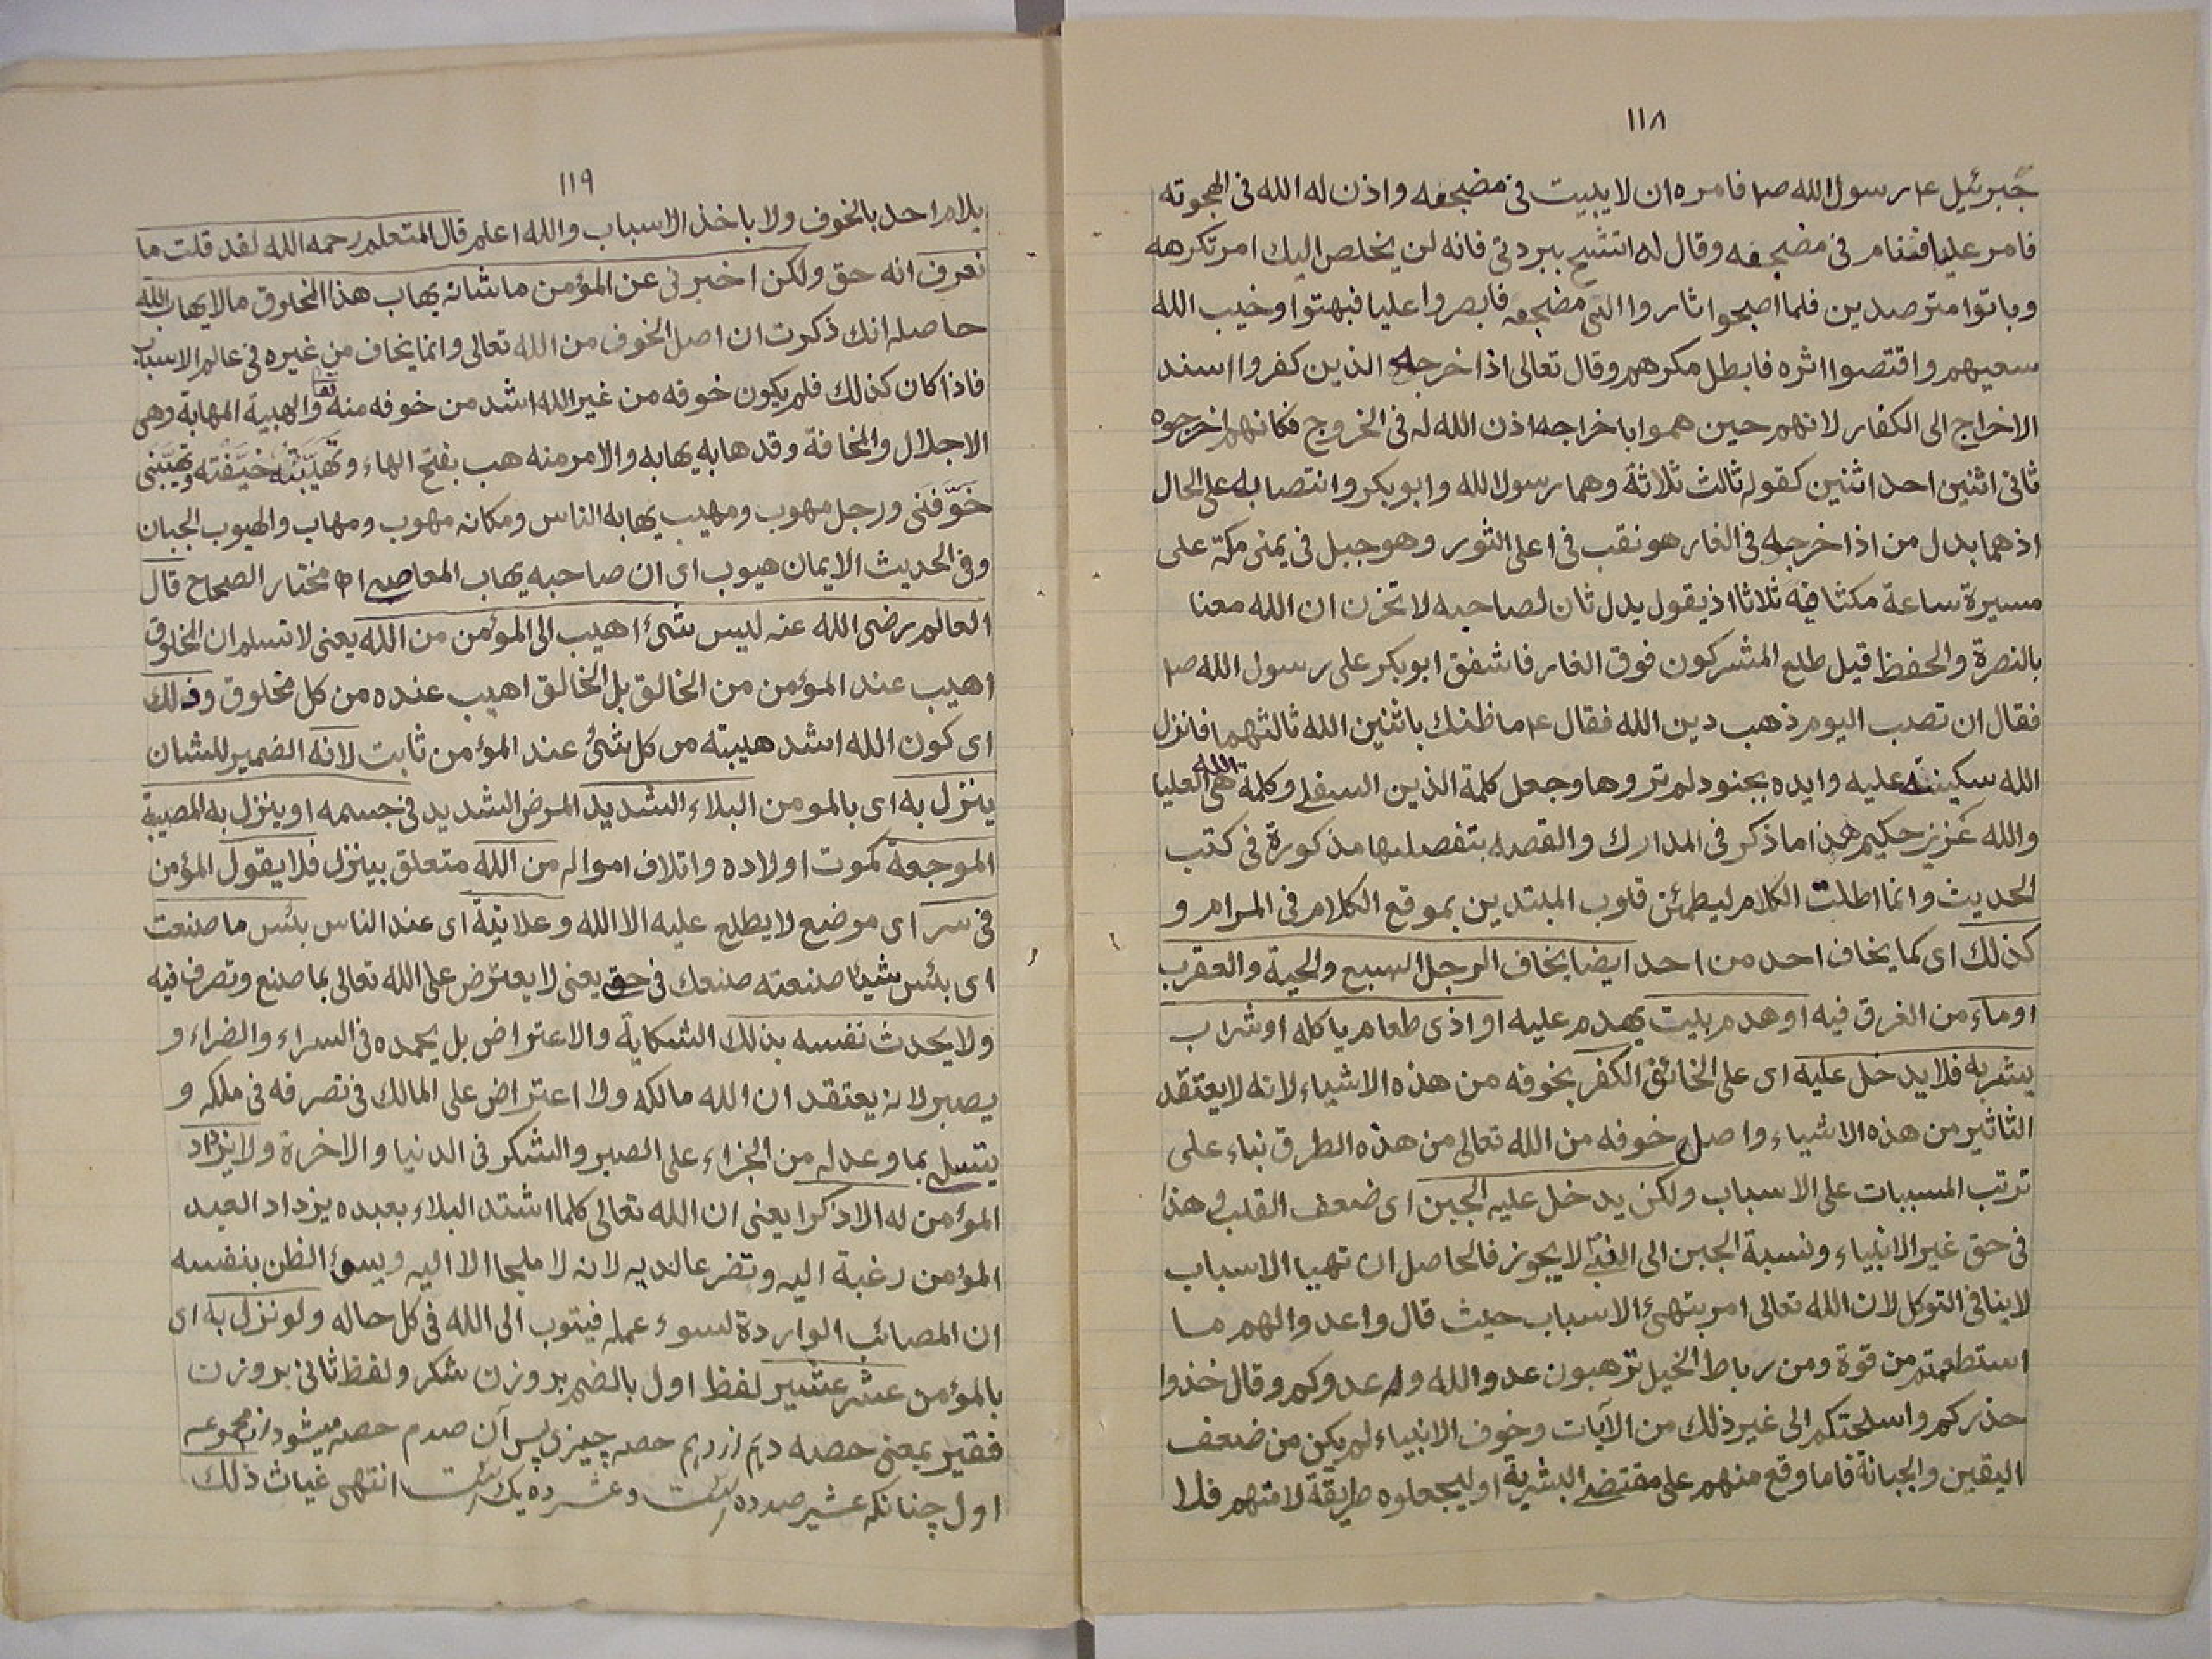 ١١٨
جبرئيل ع رسول الله صم فامره ان لا يبيت في مضجعه واذن له الله في الهجرته
فامر عليا فنام في مضجعه وقال له اتشح ببردتي فانه لن يخلص اليك امر تكرهه
وباتوا مترصدين فلما اصبحوا ثاروا الى مضجعه فابصروا عليا فبهتوا وخيب الله
سعيهم واقتصوا اثره فابطل مكرهم وقال تعالى اذ اخرجه الذين كفروا اسند
الاخراج الى الكفار لانهم حين هموا باخراجه اذن الله له في الخروج فكانهم اخرجوه
ثاني اثنين احد اثنين كقوله ثالث ثلاثة وهما رسول الله وابو بكر وانتصابه على الحال
اذ هما بدل من اذ اخرجه في الغار هو نقب في اعلى الثور وهو جبل في يمنى مكة على
مسيرة ساعة مكثا فيه ثلاثا اذ يقول بدل ثان لصاحبه لا تحزن ان الله معنا
بالنصرة والحفظ قيل طلع المشركون فوق الغار فاشفق ابو بكر على رسول الله صم
فقال ان تصب اليوم ذهب دين الله فقال ع ما ظنك باثنين الله ثالثهما فانزل
الله سكينته عليه وايده بجنود لم تروها وجعل كلمة الذين السفلى وكلمة الله هي العليا
والله عزيز حكيم هذا ما ذكر في المدارك والقصه بتفصيلها مذكورة في كتب
الحديث وانما اطلت الكلام ليطمئن قلوب المبتدين بموقع الكلام في المرام و
كذلك اى كما يخاف احد من احد ايضا يخاف الرجل السبع والحية والعقرب
او ماء من الغرق فيه او هدم بيت يهدم عليه او اذى طعام ياكله او شراب
يشربه فلا يدخل عليه اى على الخائف الكفر بخوفه من هذه الاشياء لانه لا يعتقد
التاثير من هذه الاشياء واصل خوفه من الله تعالى من هذه الطرق بناء على
ترتب المسببات على الاسباب ولكن يدخل عليه الجبن اى ضعف القلب وهذا
في حق غير الانبياء ونسبة الجبن الى النبي لا يجوز فالحاصل ان تهيا الاسباب
لا ينافى التوكل لان الله تعالى امر بتهئ الاسباب حيث قال واعدوا لهم ما
استطعتم من قوة ومن رباط الخيل ترهبون عدو الله وعدوكم وقال خذوا
حذركم واسلحتكم الى غير ذلك من الآيات وخوف الانبياء لم يكن من ضعف
اليقين والجبانة فاما وقع منهم على مقتضى البشرية او ليجعلوه طريقة لامتهم فلا
١١٩
يلام احد بالخوف ولا باخذ الاسباب والله اعلم قال المتعلم رحمه الله لقد قلت ما
نعرف انه حق ولكن اخبرنى عن المؤمن ما شانه يهاب هذا المخلوق ما لا يهاب الله
حاصله انك ذكرت ان اصل الخوف من الله تعالى وانما يخاف من غيره في عالم الاسباب
فاذا كان كذلك فلم يكون خوفه من غير الله اشد من خوفه منه تعا والهيبة المهابة وهى
الاجلال والمخافة وقد هابه يهابه والامر منه هب بفتح الهاء وتَهَيَّبْتُه خِيفْتُه وتهيَّبَنى
خَوَّفَنى ورجل مهوب ومهيب يهابه الناس ومكانه مهوب ومهاب والهيوب الجبان
وفي الحديث الايمان هيوب اى ان صاحبه يهاب المعاصى اه مختار الصحاح قال
العالم رضى الله عنه ليس شئ اهيب الى المؤمن من الله يعنى لا تسلم ان المخلوق
اهيب عند المؤمن من الخالق بل الخالق اهيب عنده من كل مخلوق وذلك
اى كون الله اشد هيبته من كل شئ عند المؤمن ثابت لانه الضمير للشان
ينزل به اى بالمومن البلاء الشديد المرض الشديد في جسمه او ينزل به المصيبة
الموجعة كموت اولاده واتلاف امواله من الله متعلق بينزل فلا يقول المؤمن
في سر اى موضع لا يطلع عليه الا الله وعلانية اى عند الناس بئس ما صنعت
اى بئس شيئا صنعته صنعك في حقى يعنى لا يعترض على الله تعالى بما صنع وتصرف فيه
ولا يحدث نفسه بذلك الشكاية والاعتراض بل يحمده في السراء والضراء و
يصبر لانه يعتقد ان الله مالكه ولا اعتراض على المالك في تصرفه في ملكه و
يتسلى بما وعد له من الجزاء على الصبر والشكر في الدنيا والاخرة ولا يزداد
المؤمن له الا ذكرا يعنى ان الله تعالى كلما اشتد البلاء بعبده يزداد العبد
المؤمن رغبة اليه وتضرعا لديه لانه لا ملجا الا اليه ويسوء الظن بنفسه
ان المصائب الواردة لسوء عمله فيتوب الى الله في كل حاله ولو نزل به اى
بالمؤمن عشر عشير لفظ اول بالضم بروزن شكر ولفظ ثانى بروزن
فقير بمعنى حصه دهم از دهم حصه چيزى پس آن صدم حصه ميشود از مجموعه
اول چنانكه عشير صد ده است وعشر ده يك است انتهى غياث ذلك